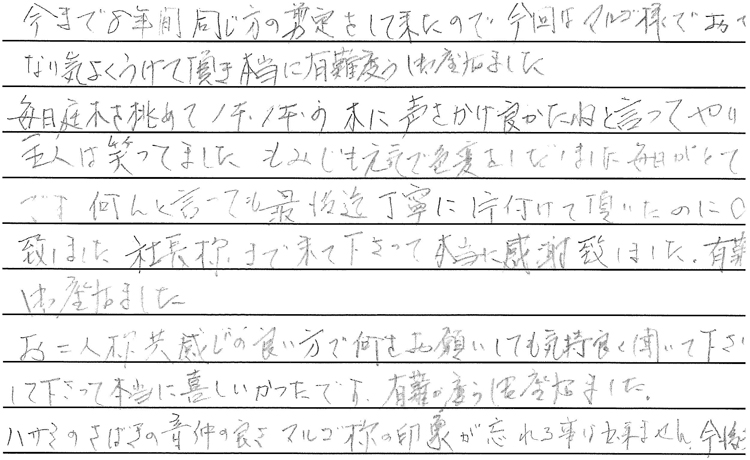 今まで8年間同じ方の剪定をして来たので今回はマルゴ様でお
なり気よくうけて頂き本当に有難度う御座ゐました
毎日庭木を挑めて 木に声をかけ良かたねと言ってやり
主人は笑ってました もみじも元気で色変をしだしました 毎日がとて
です 何んと言っても最後迄丁寧に片付けて頂いたのに
致しました 社長様まで来て下さって本当に感謝致しました。有難
御座ゐました
お二人様共感じの良い方で何をお願いしても気持良く聞いて下さ
して下さって本当に喜しいかったです、有難度う御座ゐました。
ハサミのさばきの音仲の良さマルゴ様の印象が忘れる事は出来ません。今後